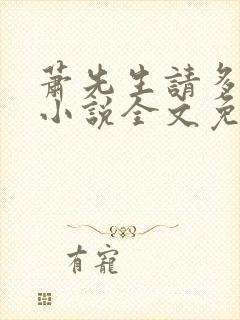 蕭先生請多
小說全文免
有寵